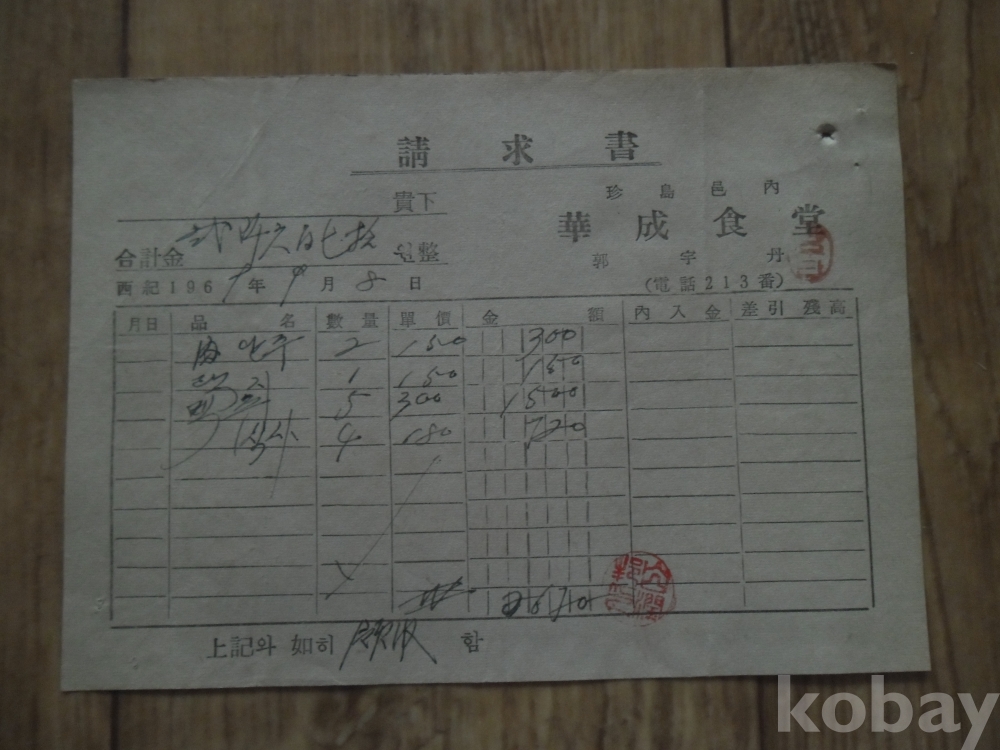 請求書
貴下
珍島邑內
華成食堂
合計金 弐阡六百七拾 원整
郭宇丹
西紀1969年9月8日
(電話213番)
月日 品名 數量 單價 金額 內入金 差引殘高
안주 2 150 300
1 150 150
5 300 1500
식사 4 180 720
計 2670
上記와 如히 領収 함
kobay